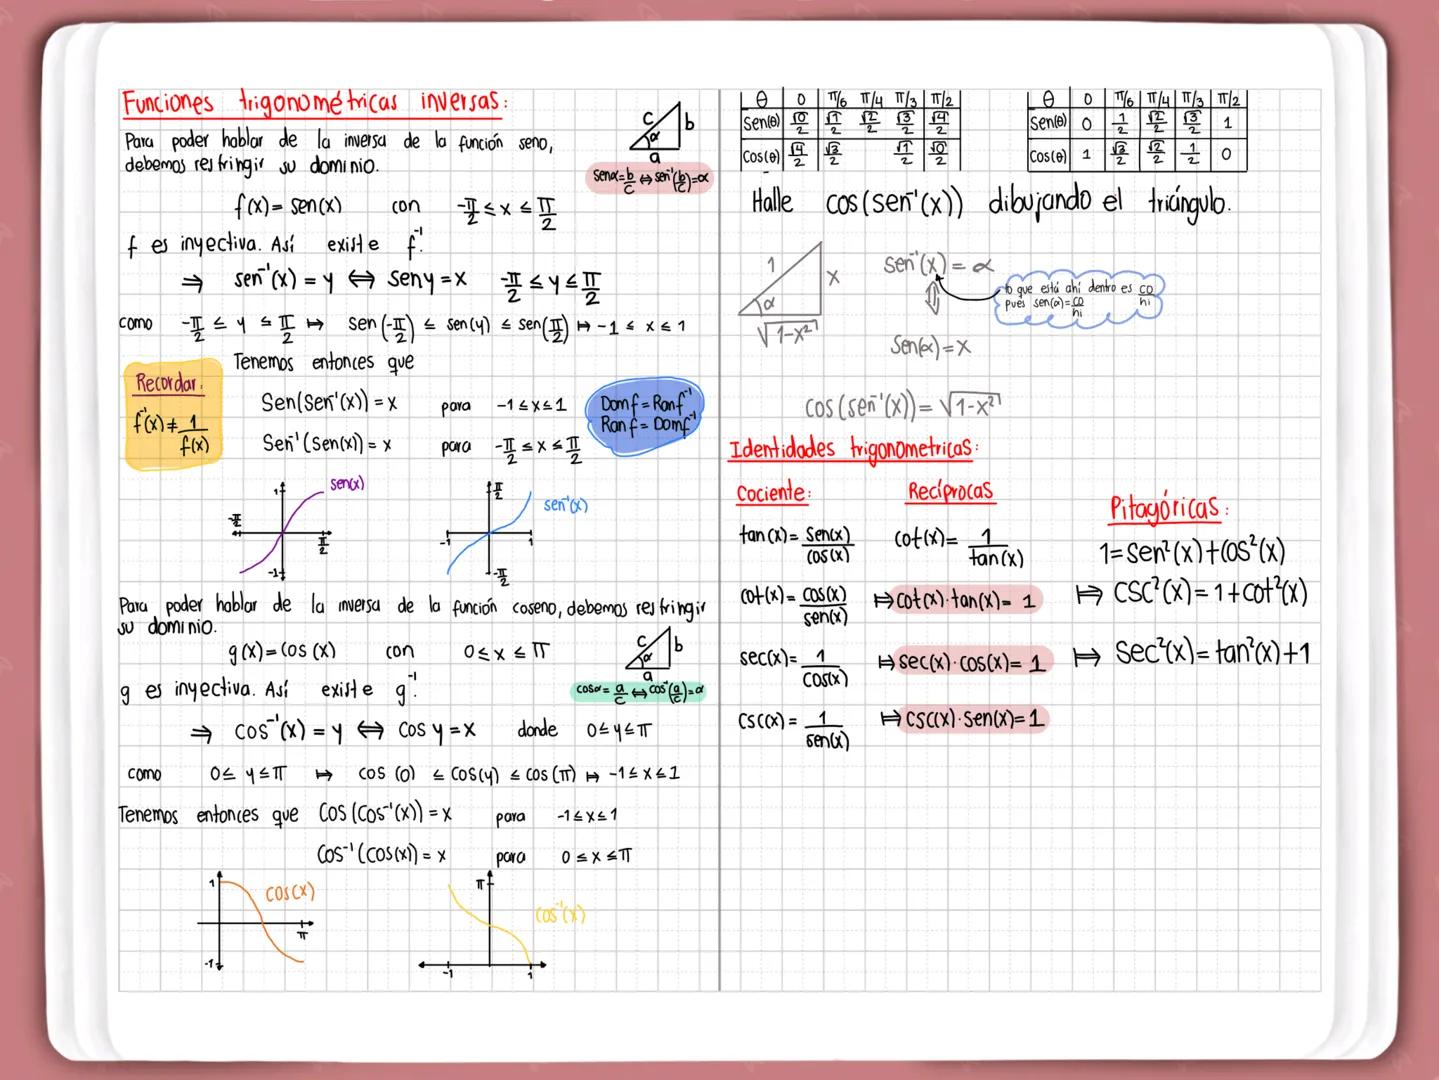 Funciones trigonométricas inversas:
Para poder hablar de la inversa de la función seno,
debemos restringir su dominio.
c b
α
a
senα = b/c ⇔ sen⁻¹(b/c) = α
f(x) = sen(x) con -π/2 ≤ x ≤ π/2
f es inyectiva. Así existe f⁻¹.
⇒ sen⁻¹(x) = y ⇔ sen y = x -π/2 ≤ y ≤ π/2
como -π/2 ≤ y ≤ π/2 ↦ sen(-π/2) ≤ sen(y) ≤ sen(π/2) ↦ -1 ≤ x ≤ 1
Tenemos entonces que
Recordar:
f⁻¹(x) ≠ 1/f(x)
Sen(Sen⁻¹(x)) = x para -1 ≤ x ≤ 1
Sen⁻¹(Sen(x)) = x para -π/2 ≤ x ≤ π/2
Dom f = Ran f⁻¹
Ran f = Dom f⁻¹
1 sen(x)
-π/2 π/2
-1
π/2 sen⁻¹(x)
-1 1
-π/2
Para poder hablar de la inversa de la función coseno, debemos restringir
su dominio.
g(x) = cos(x) con 0 ≤ x ≤ π
c b
α
a
g es inyectiva. Así existe g⁻¹.
cosα = a/c ⇔ cos⁻¹(a/c) = α
⇒ cos⁻¹(x) = y ⇔ cos y = x donde 0 ≤ y ≤ π
como 0 ≤ y ≤ π ↦ cos(0) ≤ cos(y) ≤ cos(π) ↦ -1 ≤ x ≤ 1
Tenemos entonces que Cos(Cos⁻¹(x)) = x para -1 ≤ x ≤ 1
Cos⁻¹(cos(x)) = x para 0 ≤ x ≤ π
1 cos(x)
π
-1
π cos⁻¹(x)
-1 1
θ 0 π/6 π/4 π/3 π/2
Sen(θ) √0/2 √1/2 √2/2 √3/2 √4/2
Cos(θ) √4/2 √3/2 √1/2 √0/2
θ 0 π/6 π/4 π/3 π/2
Sen(θ) 0 1/2 √2/2 √3/2 1
Cos(θ) 1 √3/2 √2/2 1/2 0
Halle cos(sen⁻¹(x)) dibujando el triángulo.
1 x
α
√1-x²
sen⁻¹(x) = α
⇕
Sen(α) = x
lo que está ahí dentro es co/hi
pues sen(α) = co/hi
cos(sen⁻¹(x)) = √1-x²
Identidades trigonometricas:
Cociente:
tan(x) = Sen(x)/cos(x)
cot(x) = cos(x)/sen(x)
sec(x) = 1/cos(x)
csc(x) = 1/sen(x)
Recíprocas
cot(x) = 1/tan(x)
↦ cot(x)·tan(x) = 1
↦ sec(x)·cos(x) = 1
↦ csc(x)·sen(x) = 1
Pitagóricas:
1 = sen²(x) + cos²(x)
↦ csc²(x) = 1 + cot²(x)
↦ Sec²(x) = tan²(x) + 1